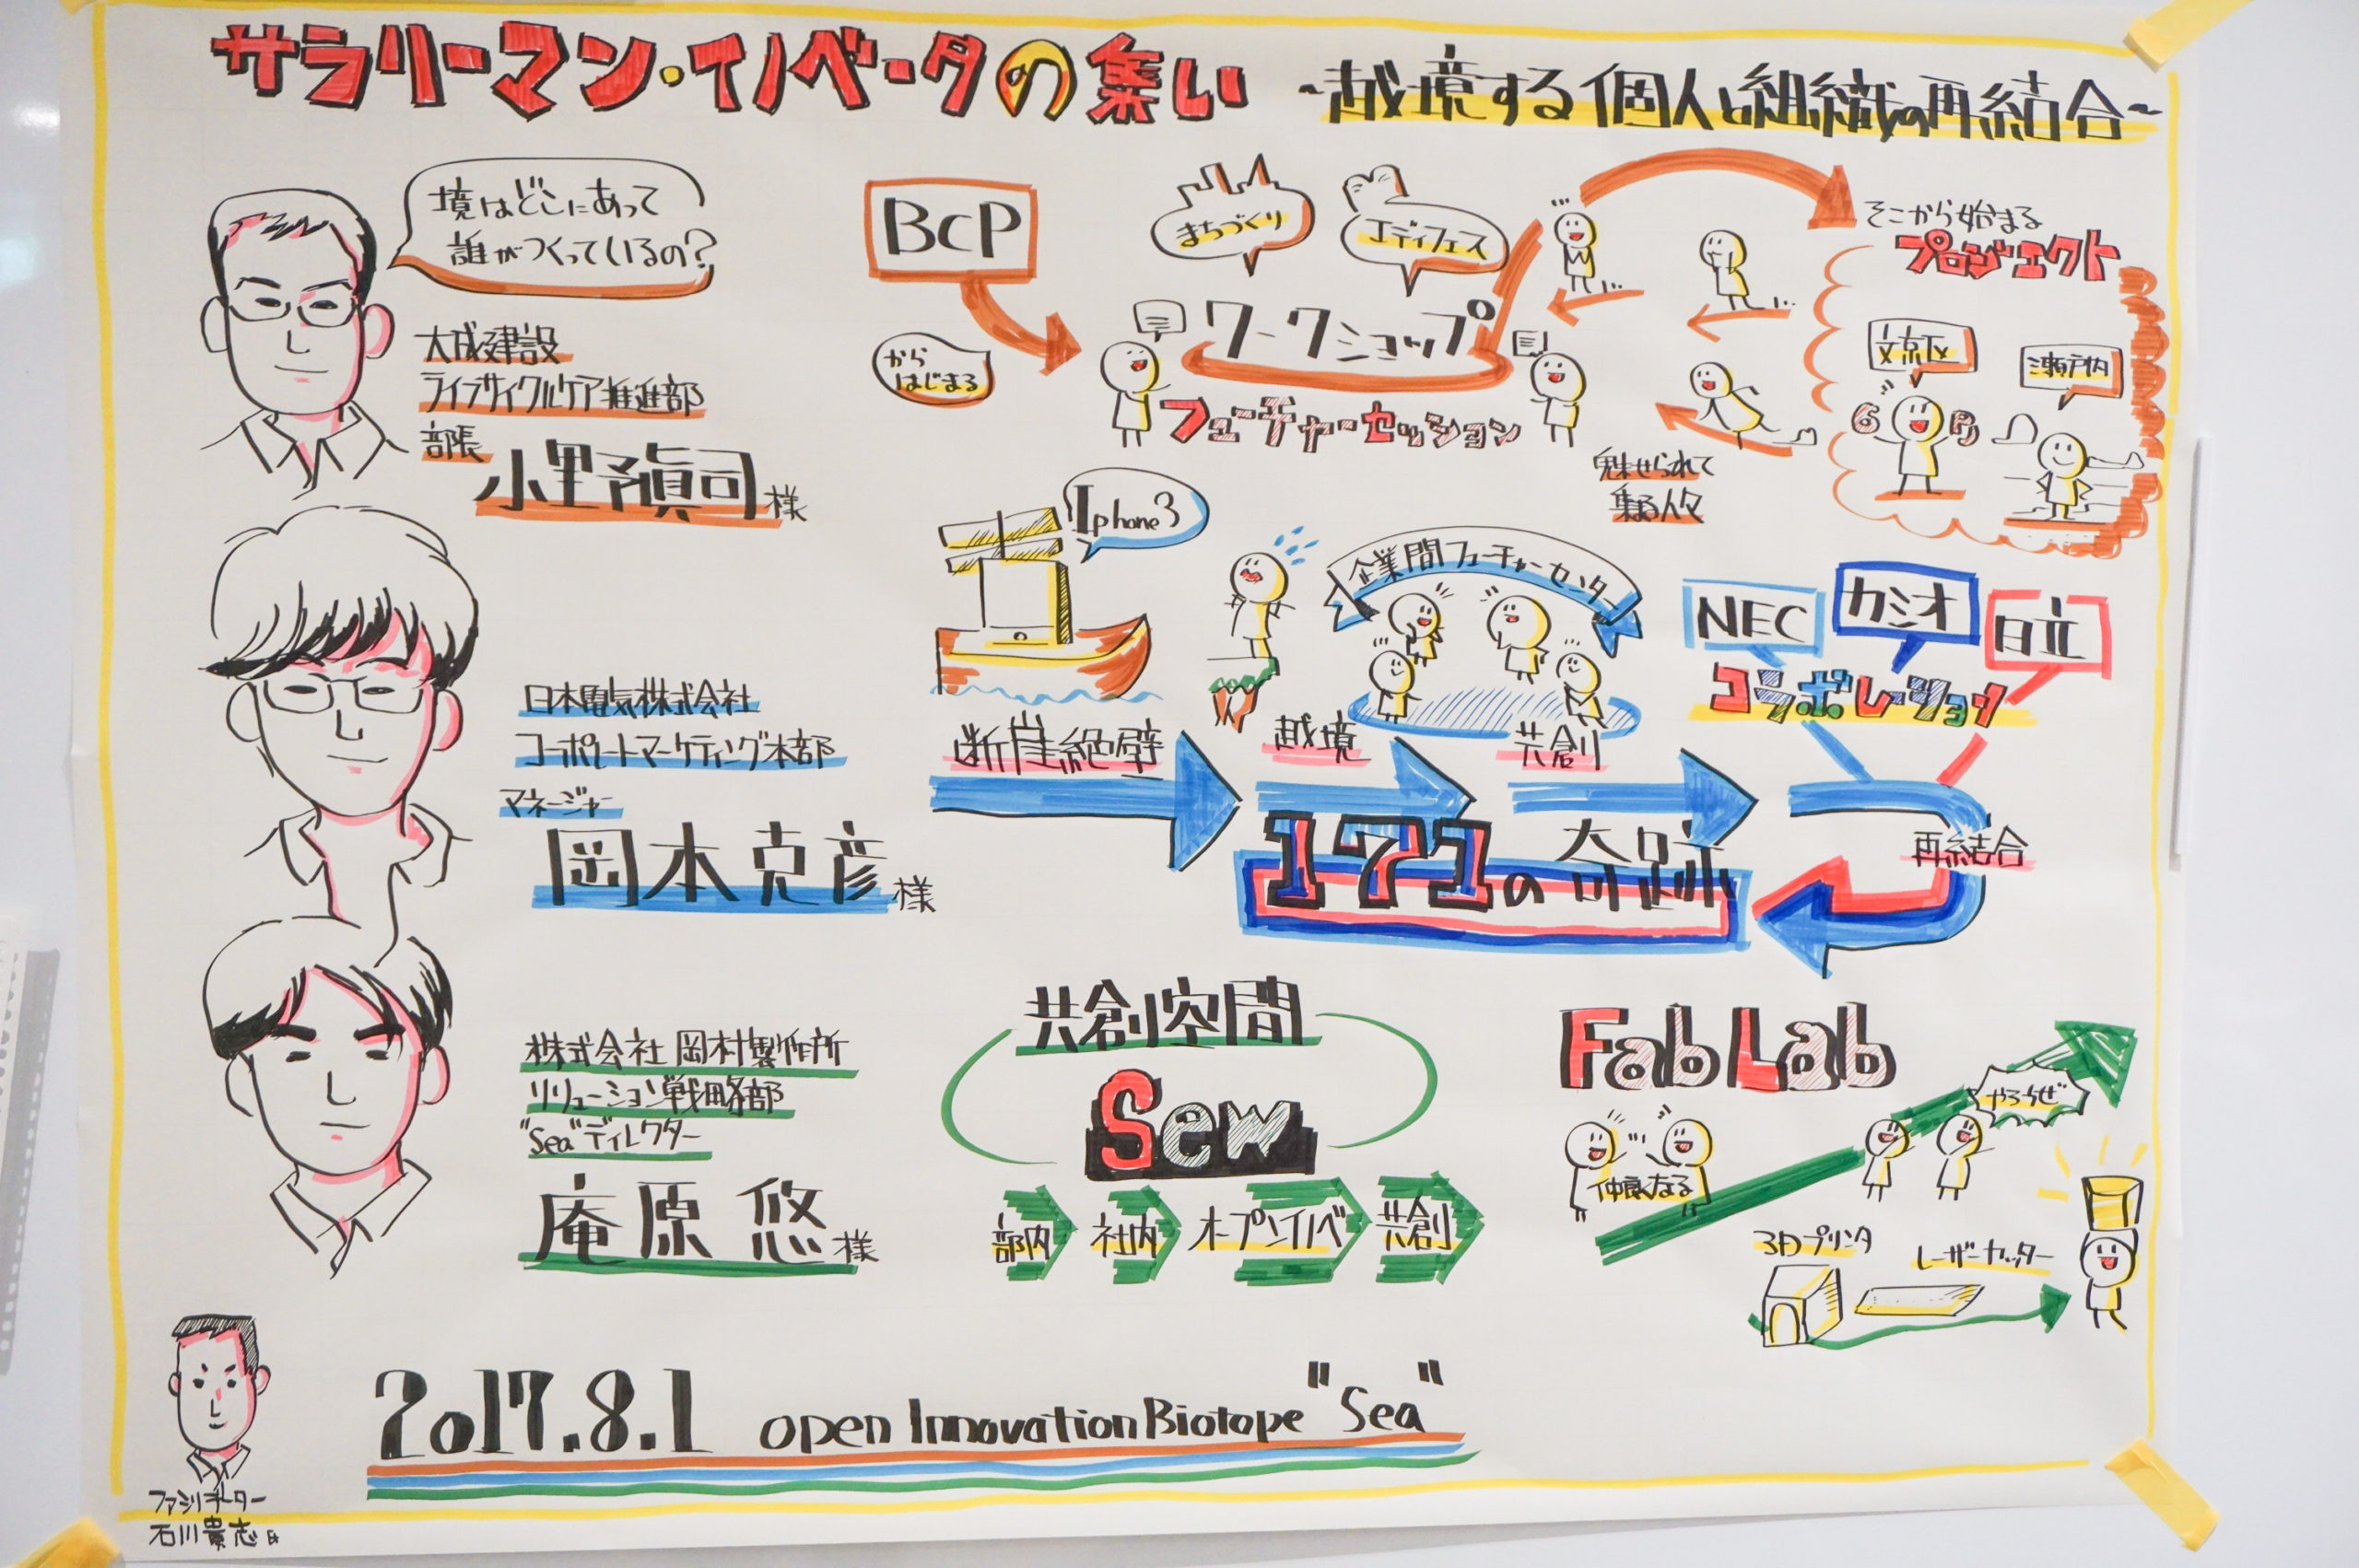 サラリーマン・イノベータの集い ~越境する個人と組織の再結合~
境はどこにあって
誰がつくっているの?
大成建設
ライフサイクルケア推進部
部長
小野眞司様
BCP
から
はじまる
まちづくり
エディフェス
ワークショップ
フューチャーセッション
そこから始まる
プロジェクト
文京区
瀬戸内
魅せられて
集まる人々
日本電気株式会社
コーポレートマーケティング本部
マネージャー
岡本克彦様
Iphone3
企業間フューチャーセンター
NEC
カシオ
日立
コラボレーション
断崖絶壁
越境
共創
再結合
171の奇跡
株式会社 岡村製作所
ソリューション戦略部
"Sea"ディレクター
庵原悠様
共創空間
Sew
部内
社内
オープンイノベ
共創
Fab Lab
仲良くなる
やろうぜ
3Dプリンタ
レーザーカッター
2017.8.1 open Innovation Biotope "Sea"
ファシリテーター
石川貴志氏